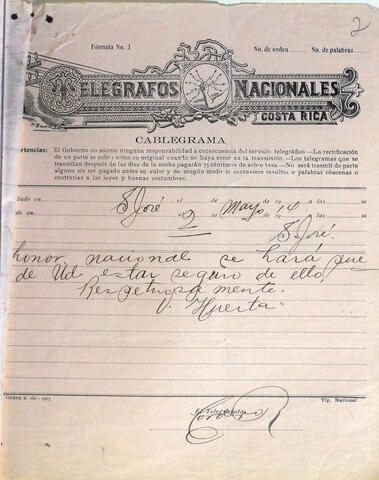 2
Fórmula No. 3 No. de orden No. de palabras
TELEGRAFOS NACIONALES
COSTA RICA
CABLEGRAMA
ertencias: El Gobierno no asume ninguna responsabilidad a consecuencia del servicio telegráfico.—La rectificación
de un parte se cobra como su original cuando no haya error en la trasmisión.—Los telegramas que se
trasmitan después de las diez de la noche pagarán 75 céntimos de sobre tasa.—No será trasmitido parte
alguno sin ser pagado antes su valor y de ningún modo si contuviere insultos o palabras obscenas o
contrarias a las leyes y buenas costumbres.
tado en S. José el de Mayo a las
do en 2 de a las
S. José.
honor nacional se hará que
de Ud estar seguro de ello
Respetuosamente.
V. "Huerta"
Orden n. 160-1913 Tip. Nacional
El Telegrafista